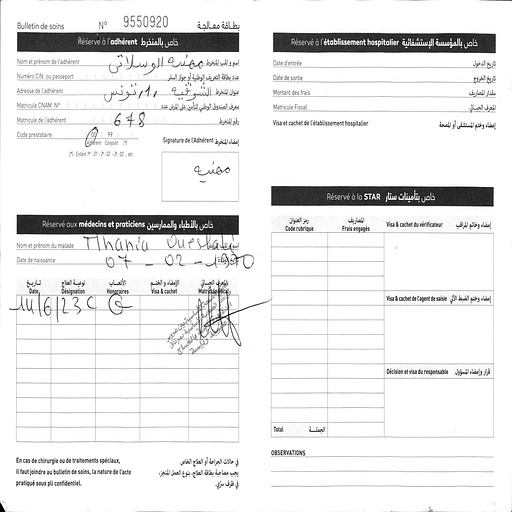 Bulletin de soins N° 9550920 بطاقة معالجة
Réservé à l'adhérent خاص بالمنخرط
Nom et prénom de l'adhérent مهنية الوسلاتي اسم و لقب المنخرط
Numéro CIN ou passeport عدد بطاقة التعريف الوطنية أو جواز السفر
Adresse de l'adhérent الشرقية 1, تونس عنوان المنخرط
Matricule CNAM N°
Matricule de l'adhérent 678 رقم المنخرط
Code prestataire 00 99
Adhérent Conjoint (*)
(*) : Enfant N° : 01 - 02 - 03 ... etc
Signature de l'Adhérent إمضاء المنخرط
مهنية
Réservé aux médecins et praticiens خاص بالأطباء والممارسين
Nom et prénom du malade Mhania Oueslati
Date de naissance 07 - 02 - 1970
تاريخ نوعية العلاج الأتعاب الإمضاء و الختم المعرف الجبائي
Date Désignation Honoraires Visa & cachet
14/6/23 C
En cas de chirurgie ou de traitements spéciaux,
il faut joindre au bulletin de soins, la nature de l'acte
pratiqué sous pli confidentiel.
في حالات الجراحة أو العلاج الخاص
يجب مصاحبة بطاقة العلاج، بنوع العمل المنجز،
في ظرف سري.
Réservé à l'établissement hospitalier خاص بالمؤسسة الإستشفائية
Date d'entrée تاريخ الدخول
Date de sortie تاريخ الخروج
Montant des frais مقدار المصاريف
Matricule Fiscal المعرف الجبائي
Visa et cachet de l'établissement hospitalier إمضاء وختم المستشفى أو المصحة
Réservé à la STAR خاص بتأمينات ستار
رمز العنوان المصاريف
Code rubrique Frais engagés
Visa & cachet du vérificateur إمضاء وخاتم المراقب
Visa & cachet de l'agent de saisie
Décision et visa du responsable قرار وإمضاء المسؤول
Total الجملة
OBSERVATIONS